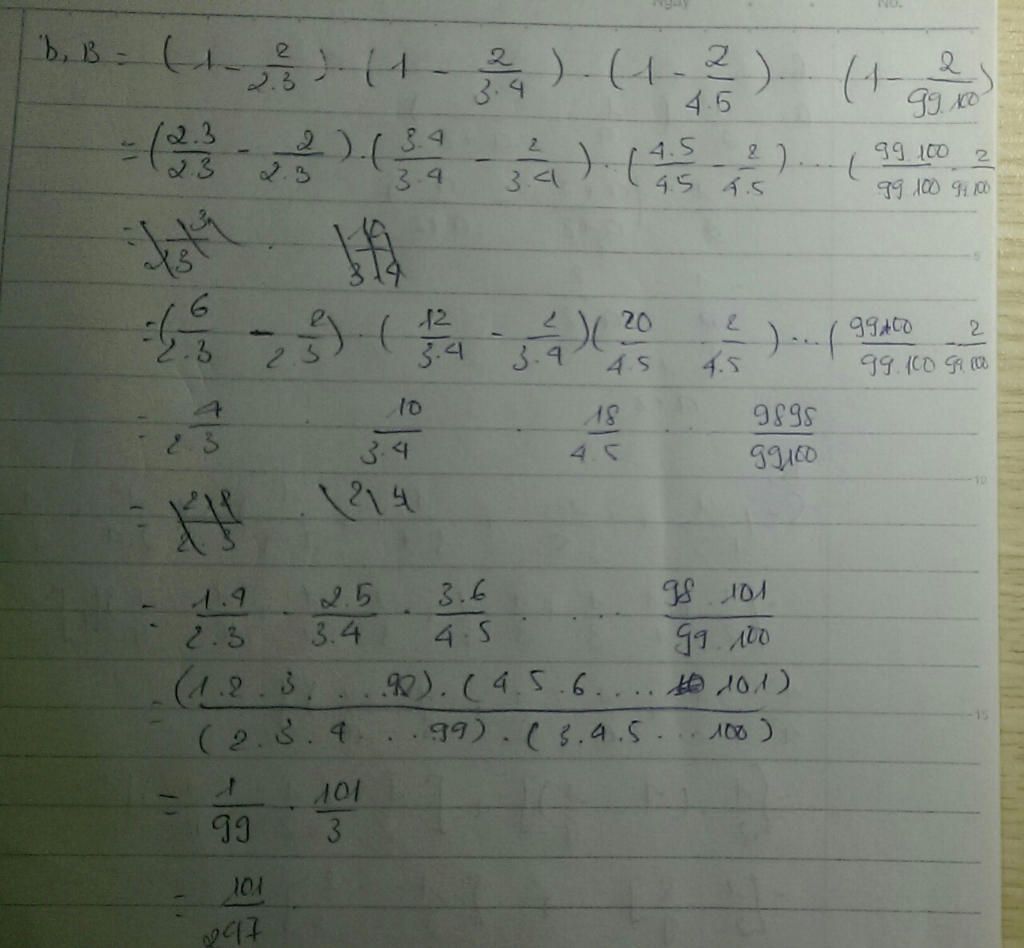 Ngày No.
b, B = (1 - 2/2.3) . (1 - 2/3.4) . (1 - 2/4.5) ... (1 - 2/99.100)
= (2.3/2.3 - 2/2.3) . (3.4/3.4 - 2/3.4) . (4.5/4.5 - 2/4.5) ... (99.100/99.100 - 2/99.100
= (6/2.3 - 2/2.3) . (12/3.4 - 2/3.4) (20/4.5 2/4.5) ... (99.100/99.100 - 2/99.100
= 4/2.3 . 10/3.4 . 18/4.5 .. 9898/99.100
= 1.4/2.3 . 2.5/3.4 . 3.6/4.5 . ... 98.101/99.100
= (1.2.3. ... 98).(4.5.6.... 101)/(2.3.4...99).(3.4.5...100)
= 1/99 . 101/3
= 101/297